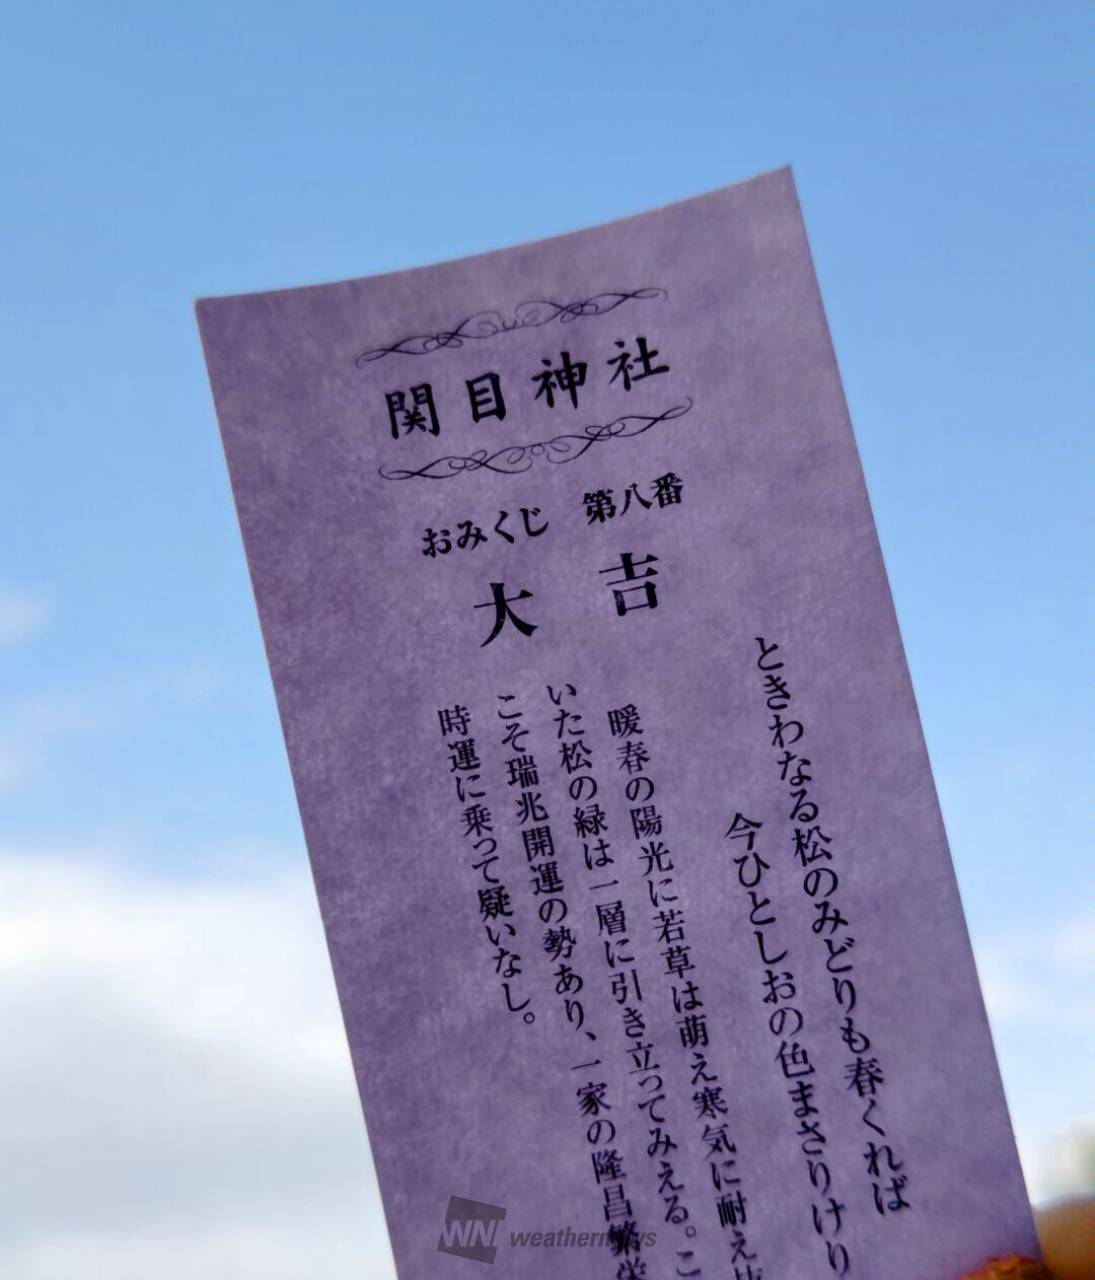 関目神社
おみくじ 第八番
大吉
ときわなる松のみどりも春くれば
今ひとしおの色まさりけり
暖春の陽光に若草は萌え寒気に耐え抜
いた松の緑は一層に引き立ってみえる。こ
こそ瑞兆開運の勢あり、一家の隆昌繁栄
時運に乗って疑いなし。
WN weathernews